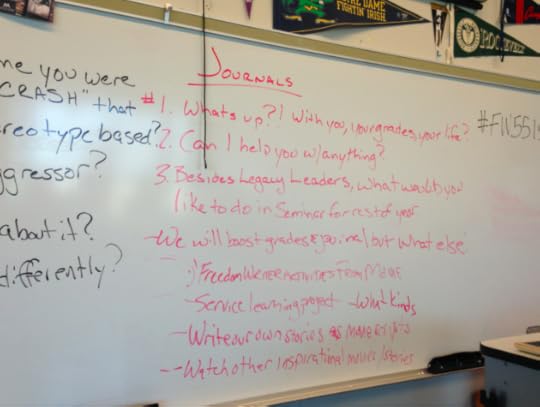 NOTRE DAME
FIGHTIN' IRISH
JOURNALS
me you were
CRASH" that
#1. What's up?! With you, your grades, your life?
#FWSS15
eotype based?
2. Can I help you w/anything?
ggressor?
3. Besides Legacy Leaders, what would you
like to do in Seminar for rest of year
about it?
-We will boost grades & journal but what else
differently?
Freedom Writer
From Movie
-Service learning project -What kinds
-Write our own stories as
-Watch other inspirational movies/stories